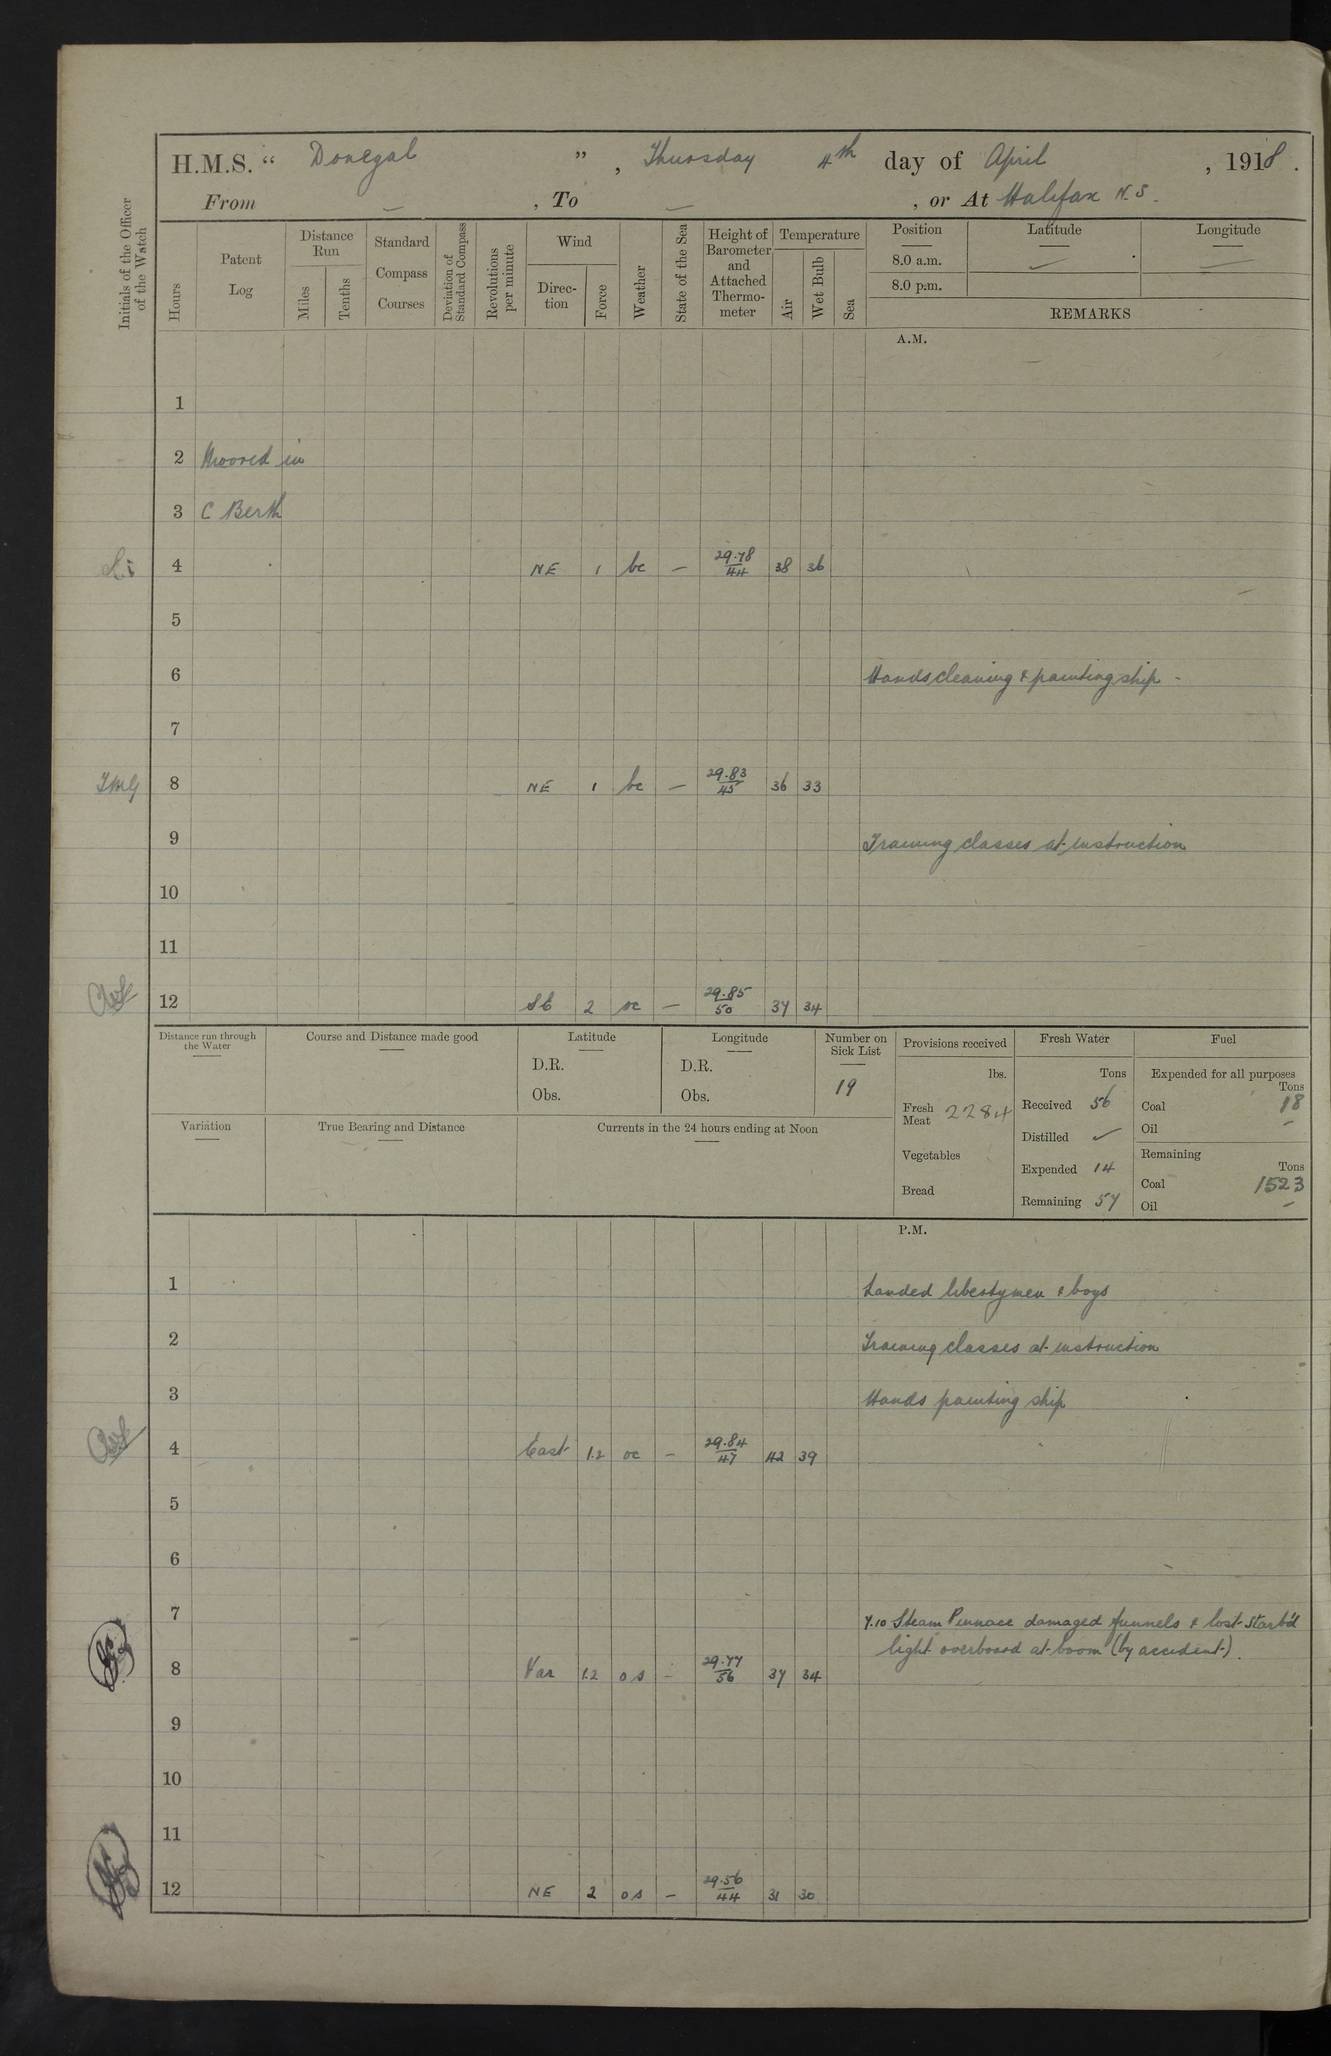 H.M.S. “ Donegal ” , Thursday 4th day of April , 1918 .
From — , To — , or At Halifax N.S.
Initials of the Officer of the Watch
Hours
Patent Log
Distance Run
Miles
Tenths
Standard Compass Courses
Deviation of Standard Compass
Revolutions per minute
Wind
Direc- tion
Force
Weather
State of the Sea
Height of Barometer and Attached Thermo- meter
Temperature
Air
Wet Bulb
Sea
Position
8.0 a.m.
8.0 p.m.
Latitude
Longitude
REMARKS
A.M.
1
2 Moored in
3 C Berth
4 NE 1 bc — 29.78/44 38 36
5
6 Hands cleaning & painting ship -
7
8 NE 1 bc — 29.83/45 36 33
9 Training classes at instruction
10
11
12 SE 2 oc — 29.85/50 37 34
Distance run through the Water
Course and Distance made good
Latitude
D.R.
Obs.
Longitude
D.R.
Obs.
Number on Sick List
19
Variation
True Bearing and Distance
Currents in the 24 hours ending at Noon
Provisions received
lbs.
Fresh Meat 2284
Vegetables
Bread
Fresh Water
Tons
Received 56
Distilled ✓
Expended 14
Remaining 57
Fuel
Expended for all purposes
Tons
Coal 18
Oil —
Remaining
Tons
Coal 1523
Oil —
P.M.
1 Landed libertymen & boys
2 Training classes at instruction
3 Hands painting ship
4 East 1.2 oc — 29.84/47 42 39
5
6
7 7.10 Steam Pinnace damaged funnels & lost starb'd
light overboard at boom (by accident).
8 Var 1.2 os - 29.77/56 37 34
9
10
11
12 NE 2 os — 29.56/44 31 30